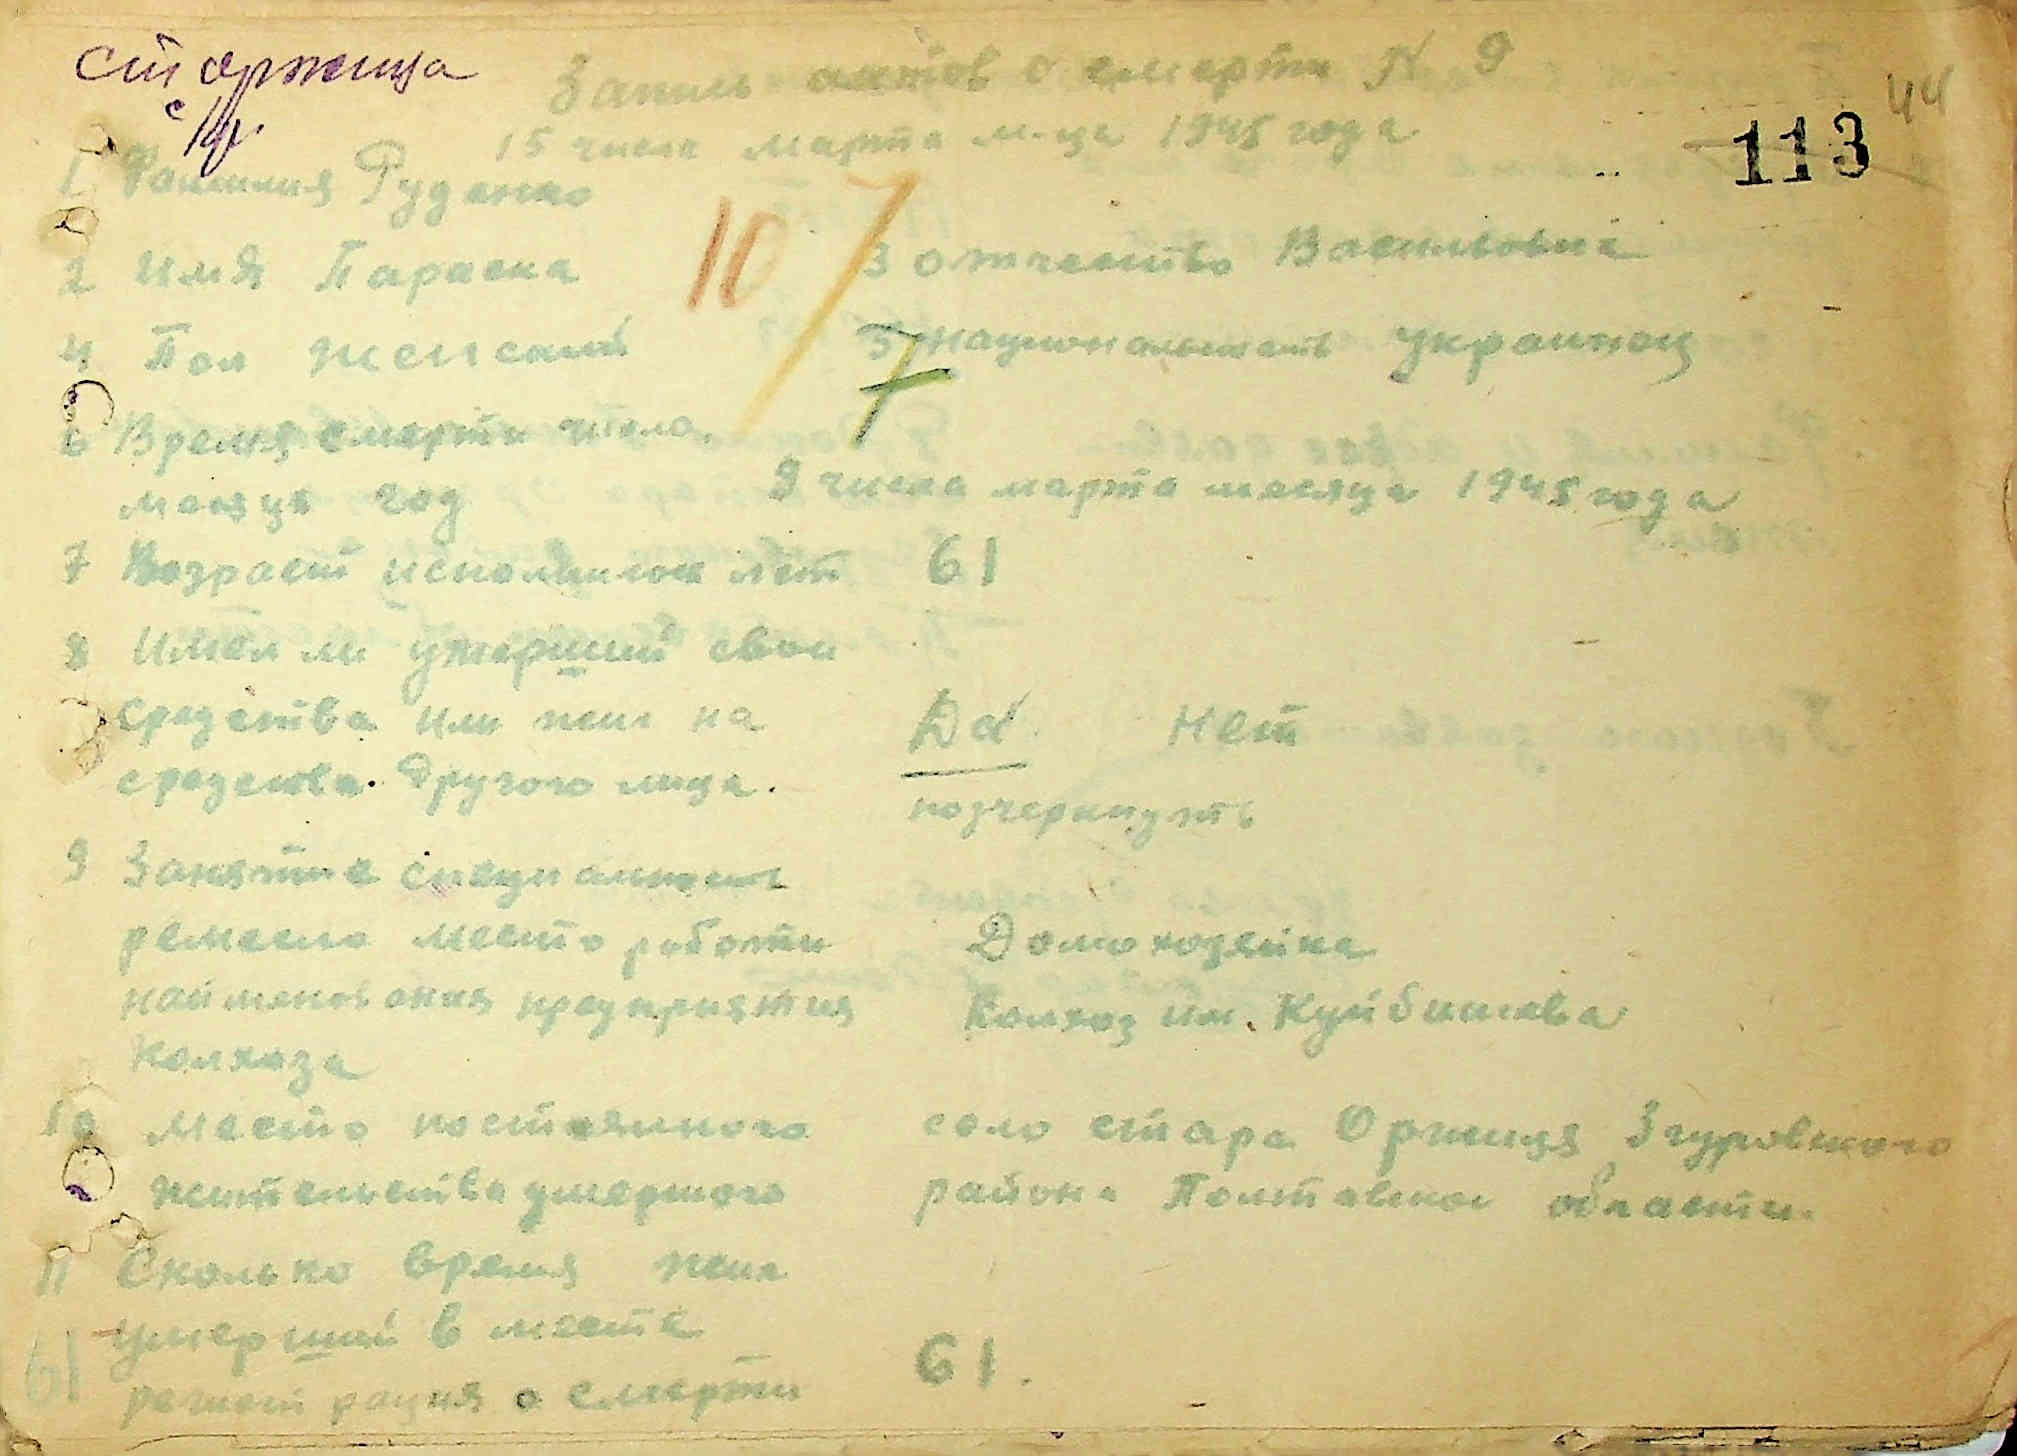 ст оржица
с/р
44
113
Запись актов о смерти № 9
15 числа марта м-ца 1945 года
1 Фамилия Руденко
10 7
2 Имя Параска 3 отчество Васильовна
4 Пол женский 5 национальность Украинец
7
6 Время смерти число,
месяця год 9 числа марта месяца 1945 года
7 Возраст исполнилось лет 61
8 Имел ли умерший свои
средства или жил на Да Нет
средства другого лица. подчеркнуть
9 Занятие специальность
ремесло место работи Домохозяйка
найменования предприятия Колхоз им. Куйбишева
Колхоза
10 Место постоянного село стара Оржиця Згуровского
жительства умершого района Полтавской области.
11 Сколько время жил
умерший в месте 61.
регистрация о смерти
61